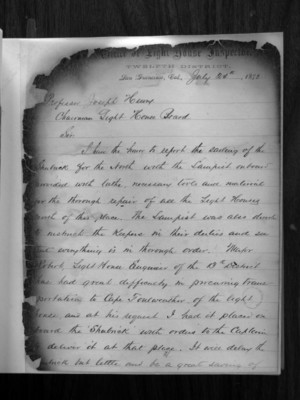 Office of Light House Inspector,
TWELFTH DISTRICT,
San Francisco, Cal. July 20th, 187
Professor Joseph Henry
Chairman Light House Board
Sir
I have the honor to report the sailing of the
for the North with the Lampist on board
provided with all the necessary tools and material
for the thorough repair of all the Light Houses
north of this place. The Lampist was also directed
to instruct the Keepers in their duties and see
that everything is in thorough order. Major
Light House Engineer of the 13th District
has had great difficulty in procuring trans
portation to Cape Foulweather of the light
house and at his request I had it placed on
board the "Shubrick" with orders to the Captain
to deliver it at that place. It will delay the
but little and be a great saving of